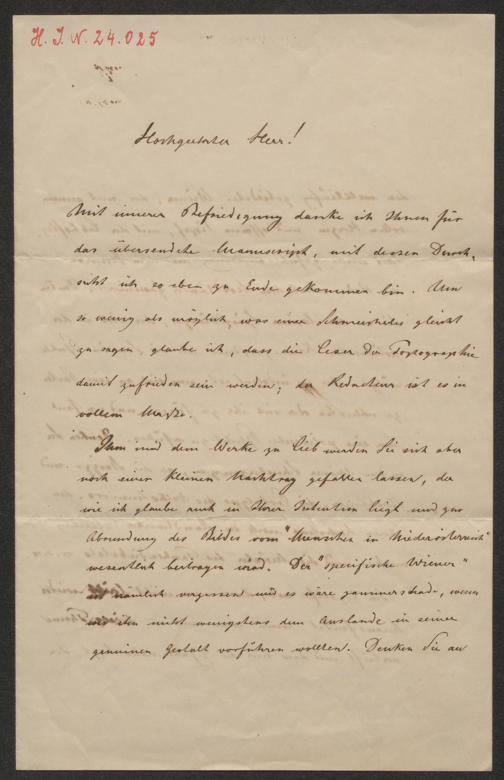 H. I. N. 24.025
Hochgeehrter Herr!
Mit innerer Befriedigung danke ich Ihnen für
das übersendete Manuscript, mit dessen Durch-
sicht ich so eben zu Ende gekommen bin. Um
so wenig als möglich, was einer Schmeichelei gleicht
zu sagen, glaube ich, dass die Leser der Topographie
damit zufrieden sein werden; der Redacteur ist es in
vollem Masze.
Ihm und dem Werke zu Lieb werden Sie sich aber
noch einen kleinen Nachtrag gefallen lassen, der
wie ich glaube auch in Ihrer Intention liegt und zur
Abrundung des Bildes vom "Menschen in Niederösterreich"
wesentlich beitragen wird. Der "specifische Wiener"
ist nämlich vergessen und es wäre jammerschade, wenn
wir ihn nicht wenigstens dem Auslande in seiner
genuinen Gestalt vorführen wollten. Denken Sie an